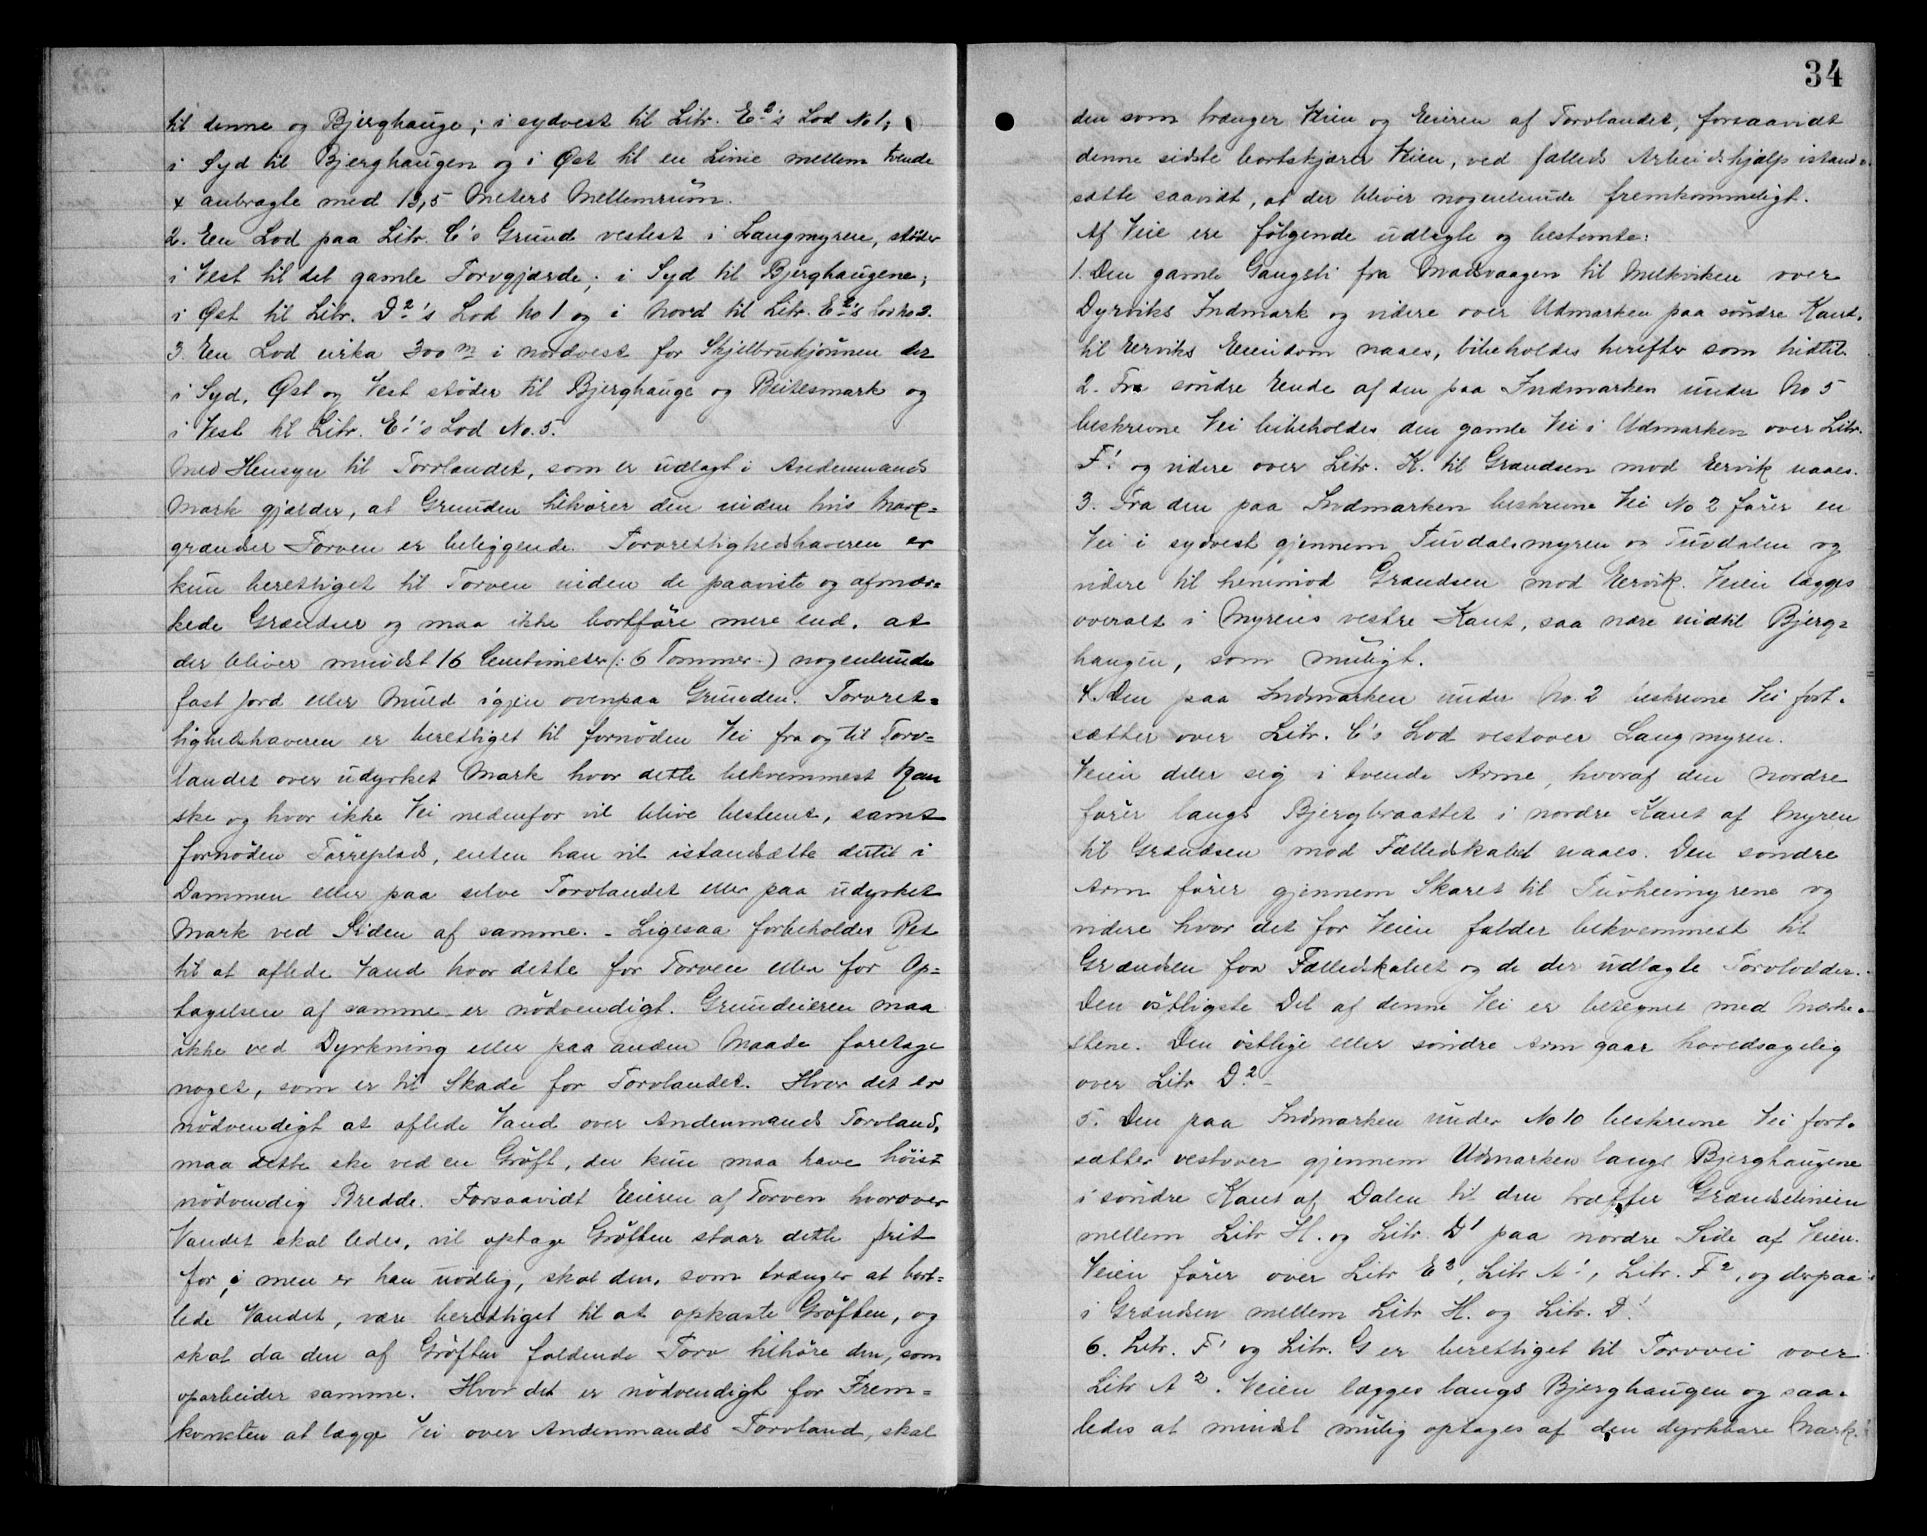 til denne og Bjerghauge; i sydvest til Litr. E²'s Lod No 1;
i Syd til Bjerghaugen og i Øst til en Linie mellem tvende
x anbragte med 13,5 Meters Mellemrüm.
2. Een Lod paa Litr. C's Grund vestest i Langmyren, støder
i Vest til det gamle Torvgjærde; i Syd til Bjerghaugene;
i Øst til Litr. D²'s Lod No 1 og i Nord til Litr. E²'s Lod No 2.
3. Een Lod cirka 300 m i nordvest for Skjelbruktjønnen der
i Syd, Øst og Vest støder til Bjerghauge og Beitesmark og
i Vest til Litr. E¹'s Lod No. 5.
Med Hensyn til Torvlandet, som er udlagt i Andenmands
Mark gjælder, at Grunden tilhører den inden hvis Mark-
grændser Torven er beliggende. Torvrettighedshaveren er
kun berettiget til Torven inden de paaviste og afmær-
kede Grændser og maa ikke bortføre mere end, at
der bliver mindst 16 Centimeter (: 6 Tommer :) nogenlunde
fast Jord eller Muld igjen ovenpaa Grunden. Torvret-
tighedshaveren er berettiget til fornøden Vei fra og til Torv-
landet over udyrket Mark hvor dette bekvemmest kan
ske og hvor ikke Vei nedenfor vil blive bestemt, samt
fornøden Tørreplads, enten han vil istandsætte dertil i
Dammen eller paa selve Torvlandet eller paa udyrket
Mark ved Siden af samme. - Ligesaa forbeholdes Ret
til at aflede Vand hvor dette for Torven eller for Op-
tagelsen af samme er nødvendigt. Grundeieren maa
ikke ved Dyrkning eller paa anden Maade foretage
noget, som er til Skade for Torvlandet. Hvor det er
nødvendigt at aflede Vand over Andenmands Torvland,
maa dette ske ved en Grøft, der kun maa have høist
nødvendig Bredde. Forsaavidt Eieren af Torven hvorover
Vandet skal ledes, vil optage Grøften staar dette frit
for; men er han uvillig, skal den, som trænger at bort-
lede Vandet, være berettiget til at opkaste Grøften, og
skal da den af Grøften faldende Torv tilhøre den, som
oparbeider samme. Hvor det er nødvendigt for Frem-
komsten at lægge Vei over Andenmands Torvland, skal
34
den som trænger Veien og Eieren af Torvlandet, forsaavidt
denne sidste bortskjærer Veien, ved fælleds Arbeidshjælp istand-
sætte saavidt, at der bliver nogenlunde fremkommeligt.
Af Veie ere følgende udlagte og bestemte:
1. Den gamle Gangsti fra Madvaagen til Melkviken over
Dyrviks Indmark og videre over Udmarken paa søndre Kant,
til Eerviks Eiendom naaes, bibeholdes herefter som hidtil.
2. Fra søndre Eende af den paa Indmarken under No 5
beskrevne Vei bibeholdes den gamle Vei i Udmarken over Litr.
F¹ og videre over Litr. K. til Grændsen mod Eervik naaes.
3. Fra den paa Indmarken beskrevne Vei No 2 fører en
Vei i sydvest gjennem Tuvdalsmyren og Tuvdalen og
videre til henimod Grændsen mod Eervik. Veien lægges
overalt i Myrens vestre Kant, saa nære indtil Bjerg-
haugen, som muligt.
4. Den paa Indmarken under No. 2 beskrevne Vei fort-
sætter over Litr. C's Lod vestover Langmyren.
Veien deler sig i tvende Arme, hvoraf den nordre
fører langs Bjergbraattet i nordre Kant af Myren
til Grændsen mod Fælledskabet naaes. Den søndre
Arm fører gjennem Skaret til Tuvheimyrene og
videre hvor det for Veien falder bekvemmest til
Grændsen for Fælledskabet og de der udlagte Torvlodder.
Den østligste Del af denne Vei er betegnet med Mærke-
stene. Den østlige eller søndre Arm gaar hovedsagelig
over Litr D²-
5. Den paa Indmarken under No 10 beskrevne Vei fort-
sætter vestover gjennem Udmarken langs Bjerghaugene
i søndre Kant af Dalen til den træffer Grændselinien
mellem Litr H. og Litr. D¹ paa nordre Side af Veien.
Veien fører over Litr E³, Litr A¹, Litr. F², og derpaa
i Grændsen mellem Litr H. og Litr. D¹
6. Litr. F¹ og Litr. G er berettiget til Torvvei over
Litr A². Veien lægges langs Bjerghaugen og saa-
ledes at mindst mulig optages af den dyrkbare Mark.